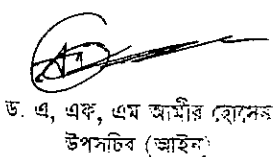 ড. এ, এফ, এম আমীর হোসেন
উপসচিব (আইন)